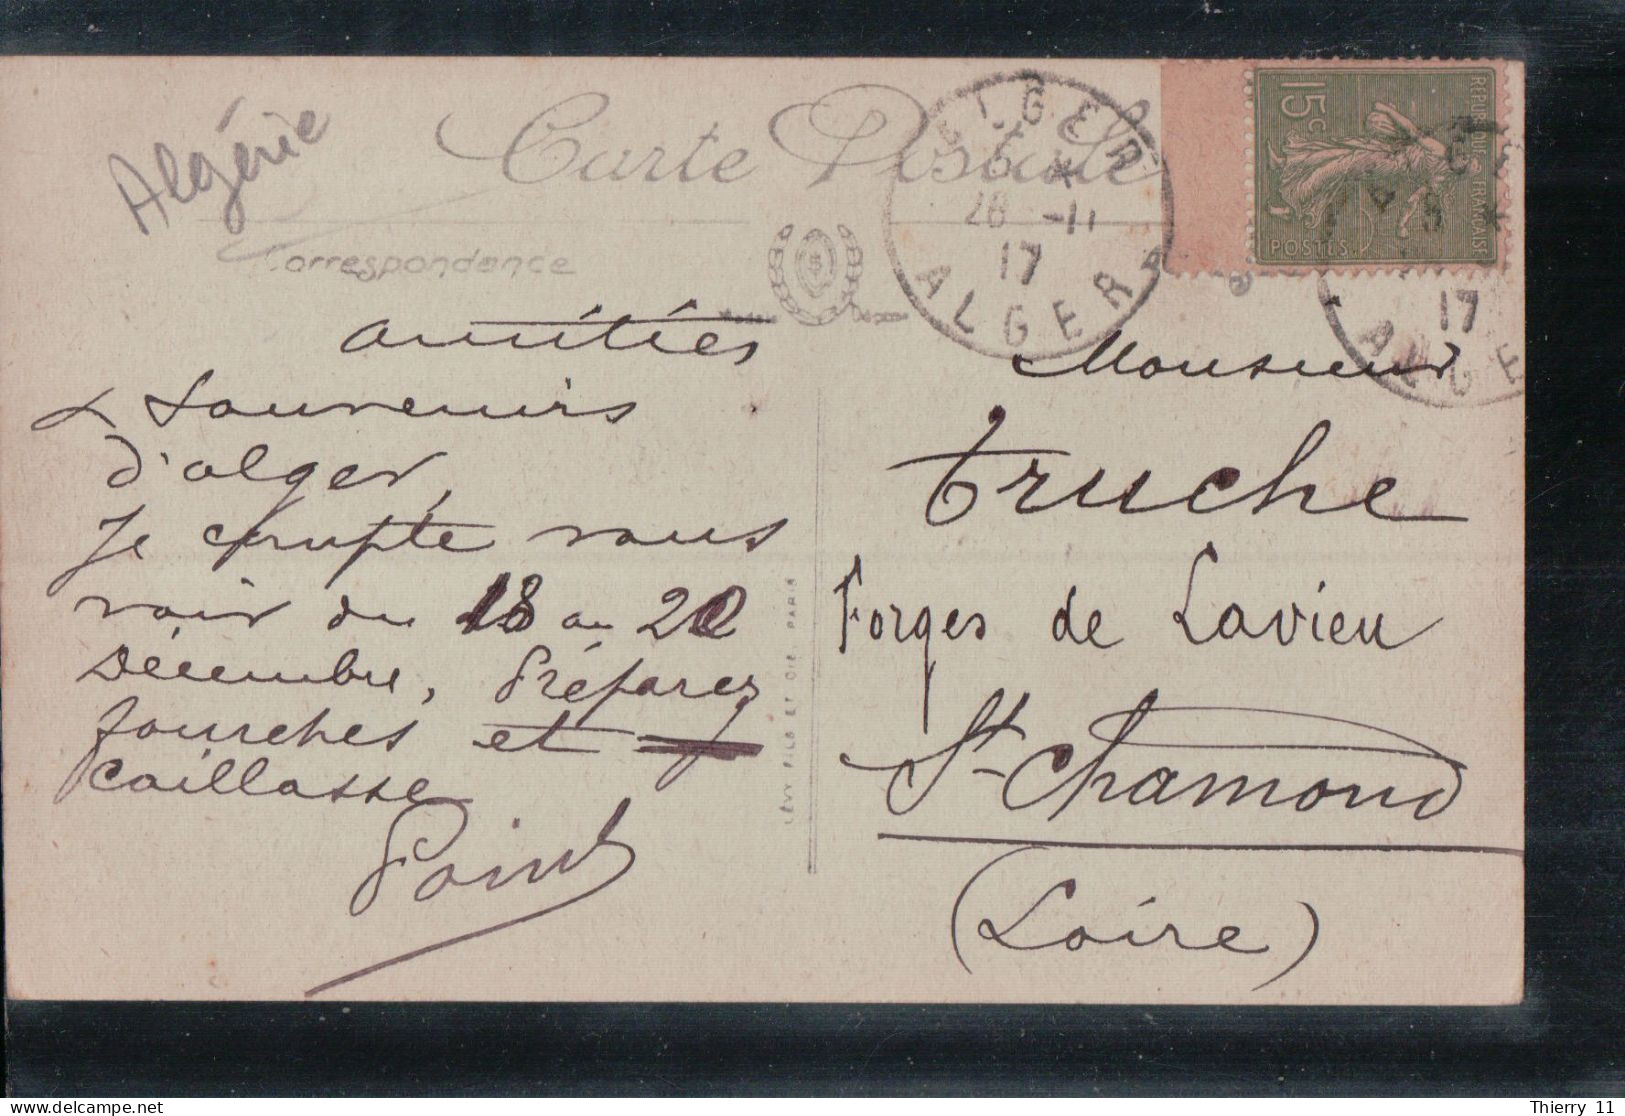 Algérie
Carte Postale
Correspondance
amitiés
& Souvenirs
d'alger,
Je compte vous
voir du 18 au 20
Décembre, Préparez
fourches et
caillasse
Monsieur
Truche
Forges de Lavieu
St-Chamond
(Loire)
LÉVY FILS ET CIE PARIS
ALGER
28 -11
17
ALGER
15c
REPUBLIQUE FRANÇAISE
POSTES
17
ALGE
Thierry 11